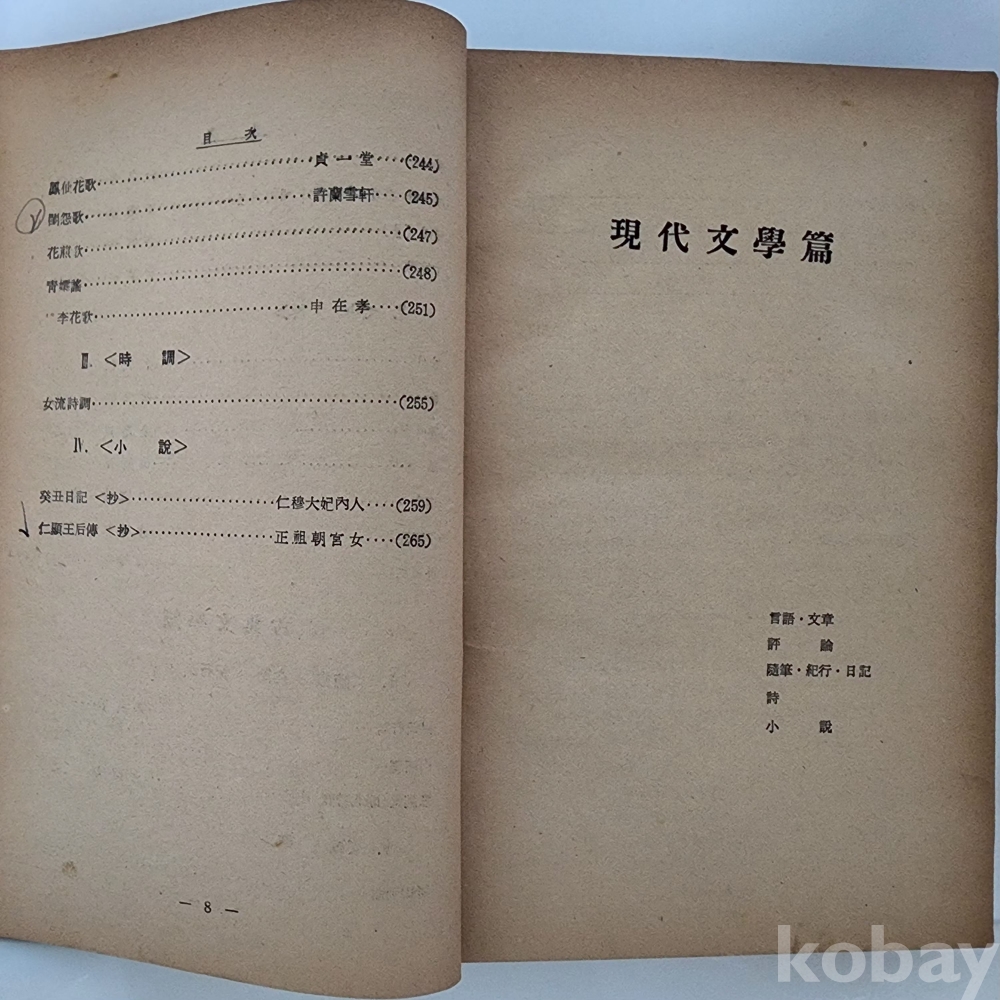 目 次
鳳仙花歌 貞一堂 (244)
閨怨歌 許蘭雪軒 (245)
花煎歌 (247)
靑孀謠 (248)
李花歌 申在孝 (251)
Ⅲ. <時 調>
女流詩調 (255)
Ⅳ. <小 說>
癸丑日記 <抄> 仁穆大妃內人 (259)
仁顯王后傳 <抄> 正祖朝宮女 (265)
— 8 —
現代文學篇
言語・文章
評 論
隨筆・紀行・日記
詩
小 說
kobay